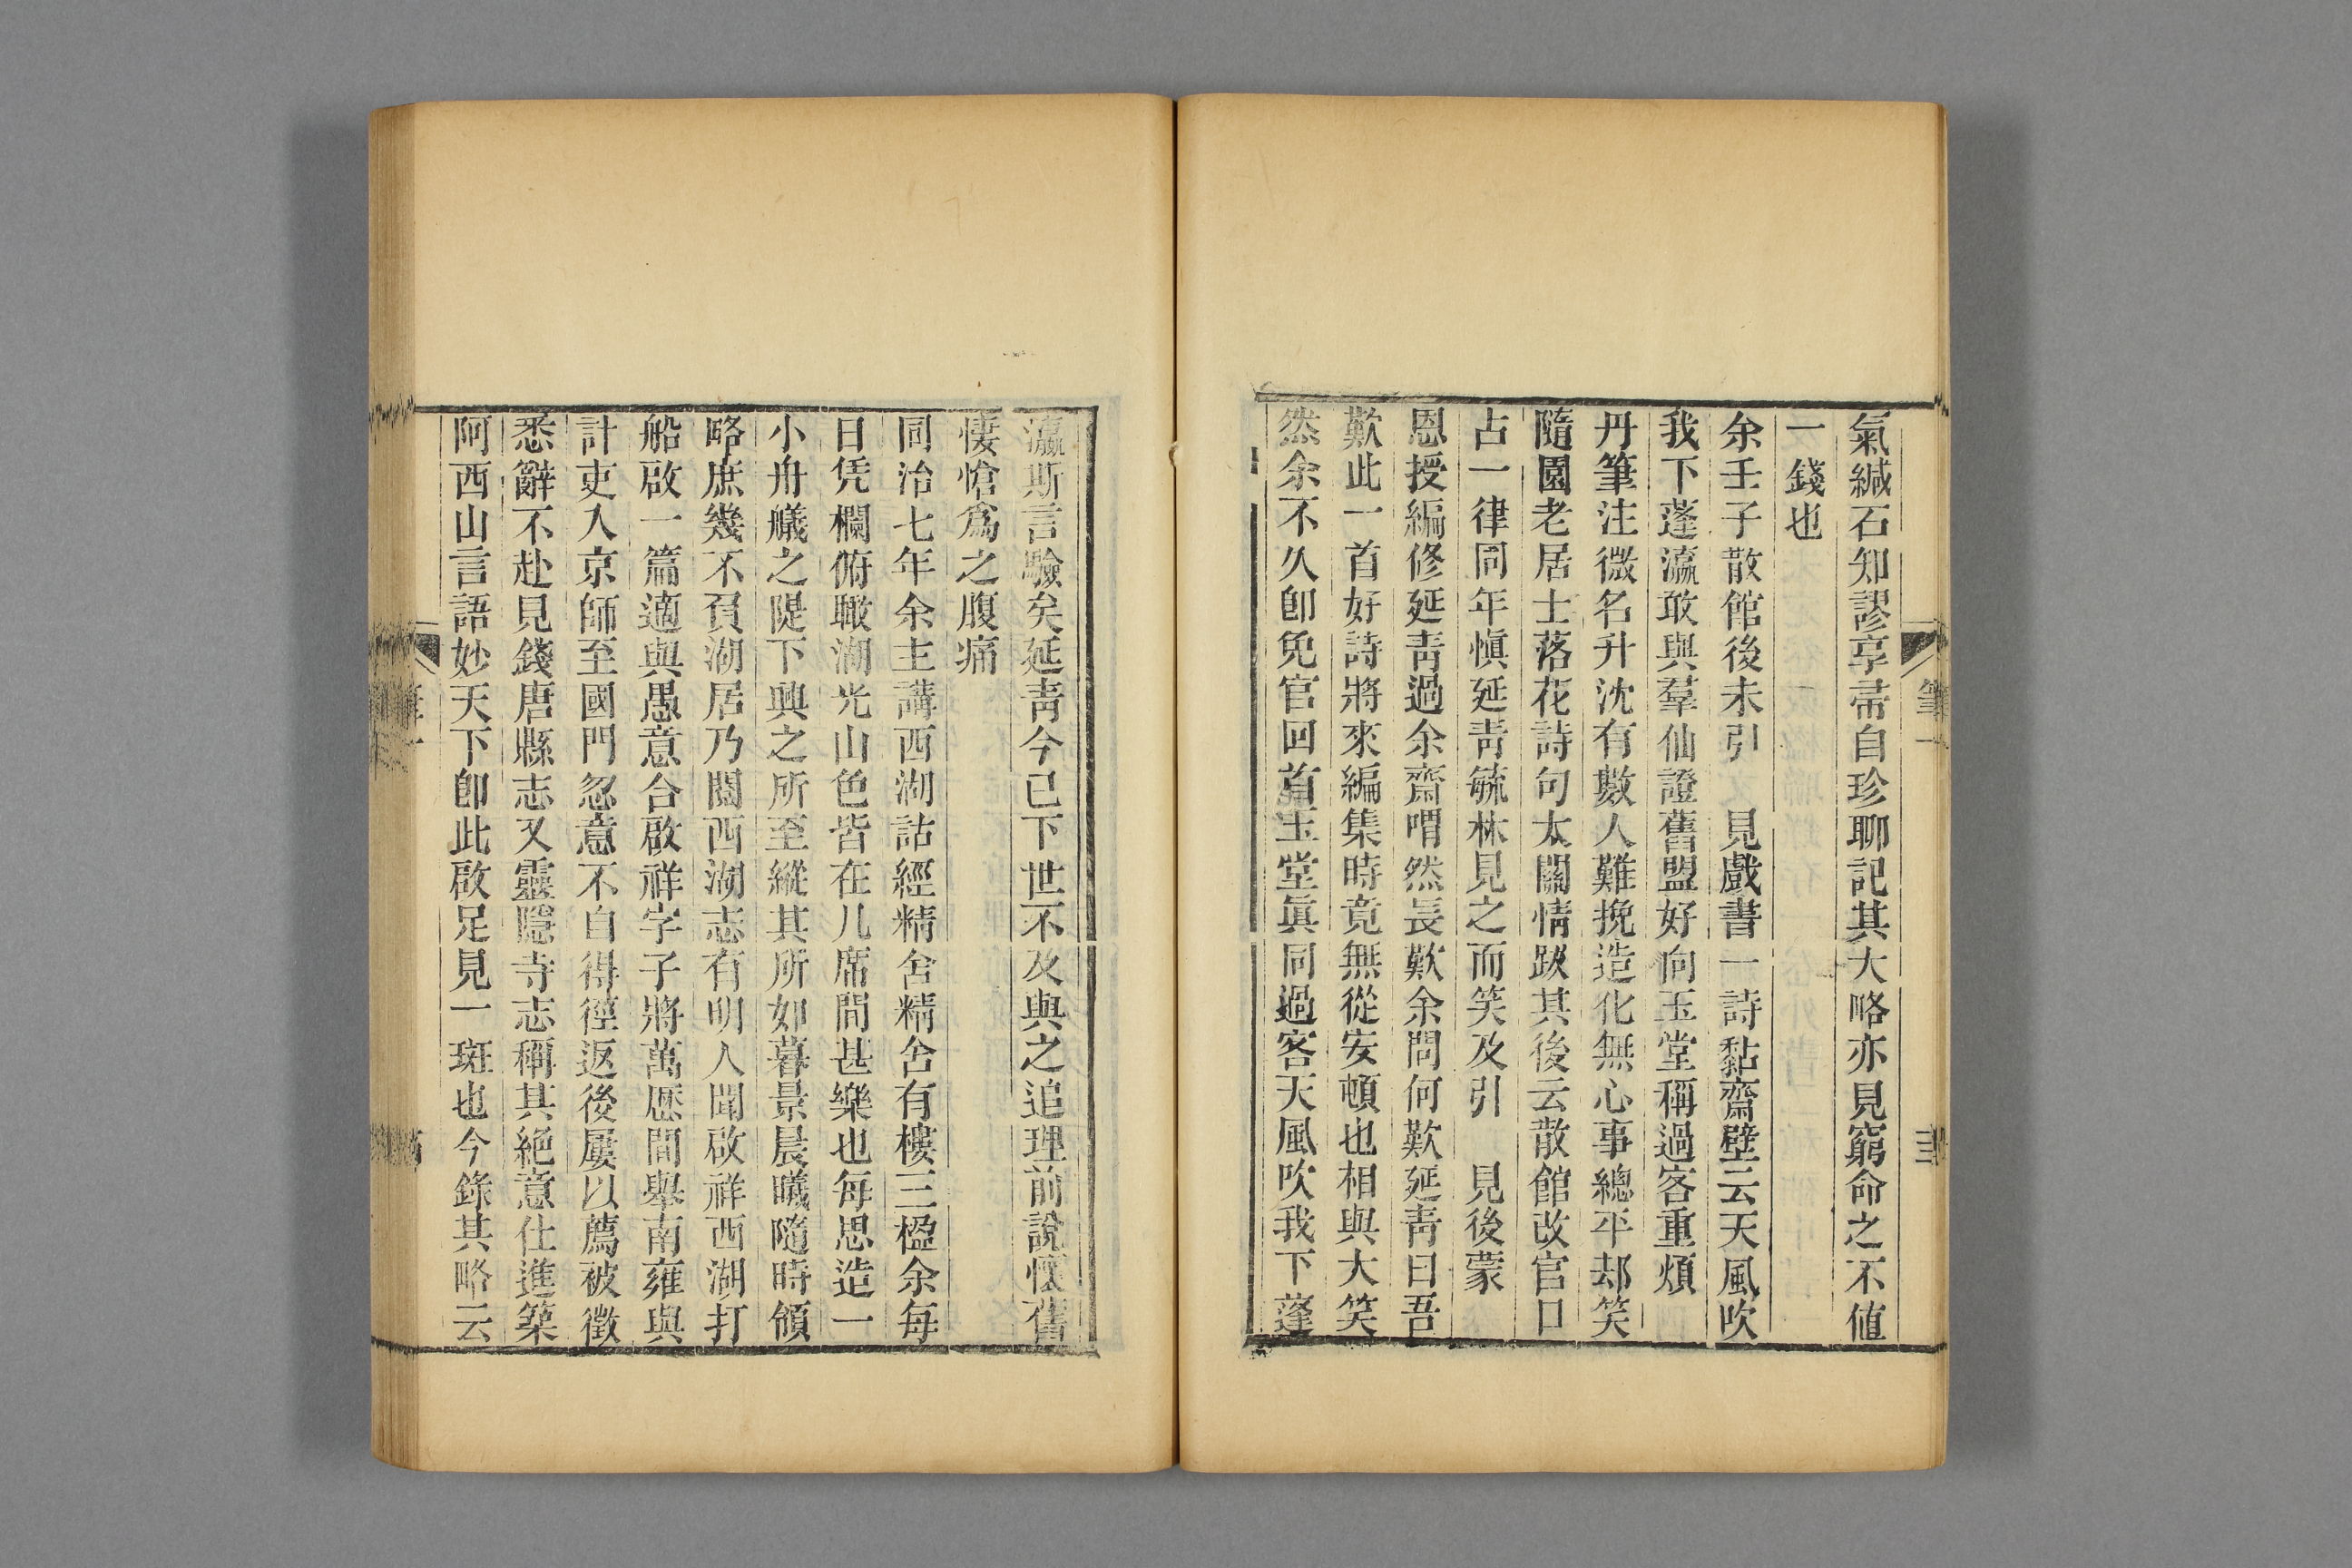 氣緘石知謬享帚自珍聊記其大略亦見窮命之不値
一錢也
余壬子散館後未引　見戲書一詩黏齋壁云天風吹
我下蓬瀛敢與羣仙證舊盟好向玉堂稱過客重煩
丹筆注微名升沈有數人難挽造化無心事總平却笑
隨園老居士落花詩句太關情跋其後云散館改官口
占一律同年愼延靑毓林見之而笑及引　見後蒙
恩授編修延靑過余齋喟然長歎余問何歎延靑曰吾
歎此一首好詩將來編集時竟無從安頓也相與大笑
然余不久卽免官回首玉堂眞同過客天風吹我下蓬
瀛斯言驗矣延靑今已下世不及與之追理前說懷舊
悽愴爲之腹痛
同治七年余主講西湖詁經精舍精舍有樓三楹余每
日凭欄俯瞰湖光山色皆在几席間甚樂也每思造一
小舟艤之隄下興之所至縱其所如暮景晨曦隨時領
略庶幾不負湖居乃閱西湖志有明人聞啟祥西湖打
船啟一篇適與愚意合啟祥字子將萬歷間舉南雍與
計吏入京師至國門忽意不自得徑返後屢以薦被徵
悉辭不赴見錢唐縣志又靈隱寺志稱其絕意仕進築
阿西山言語妙天下卽此啟足見一斑也今錄其略云
筆一